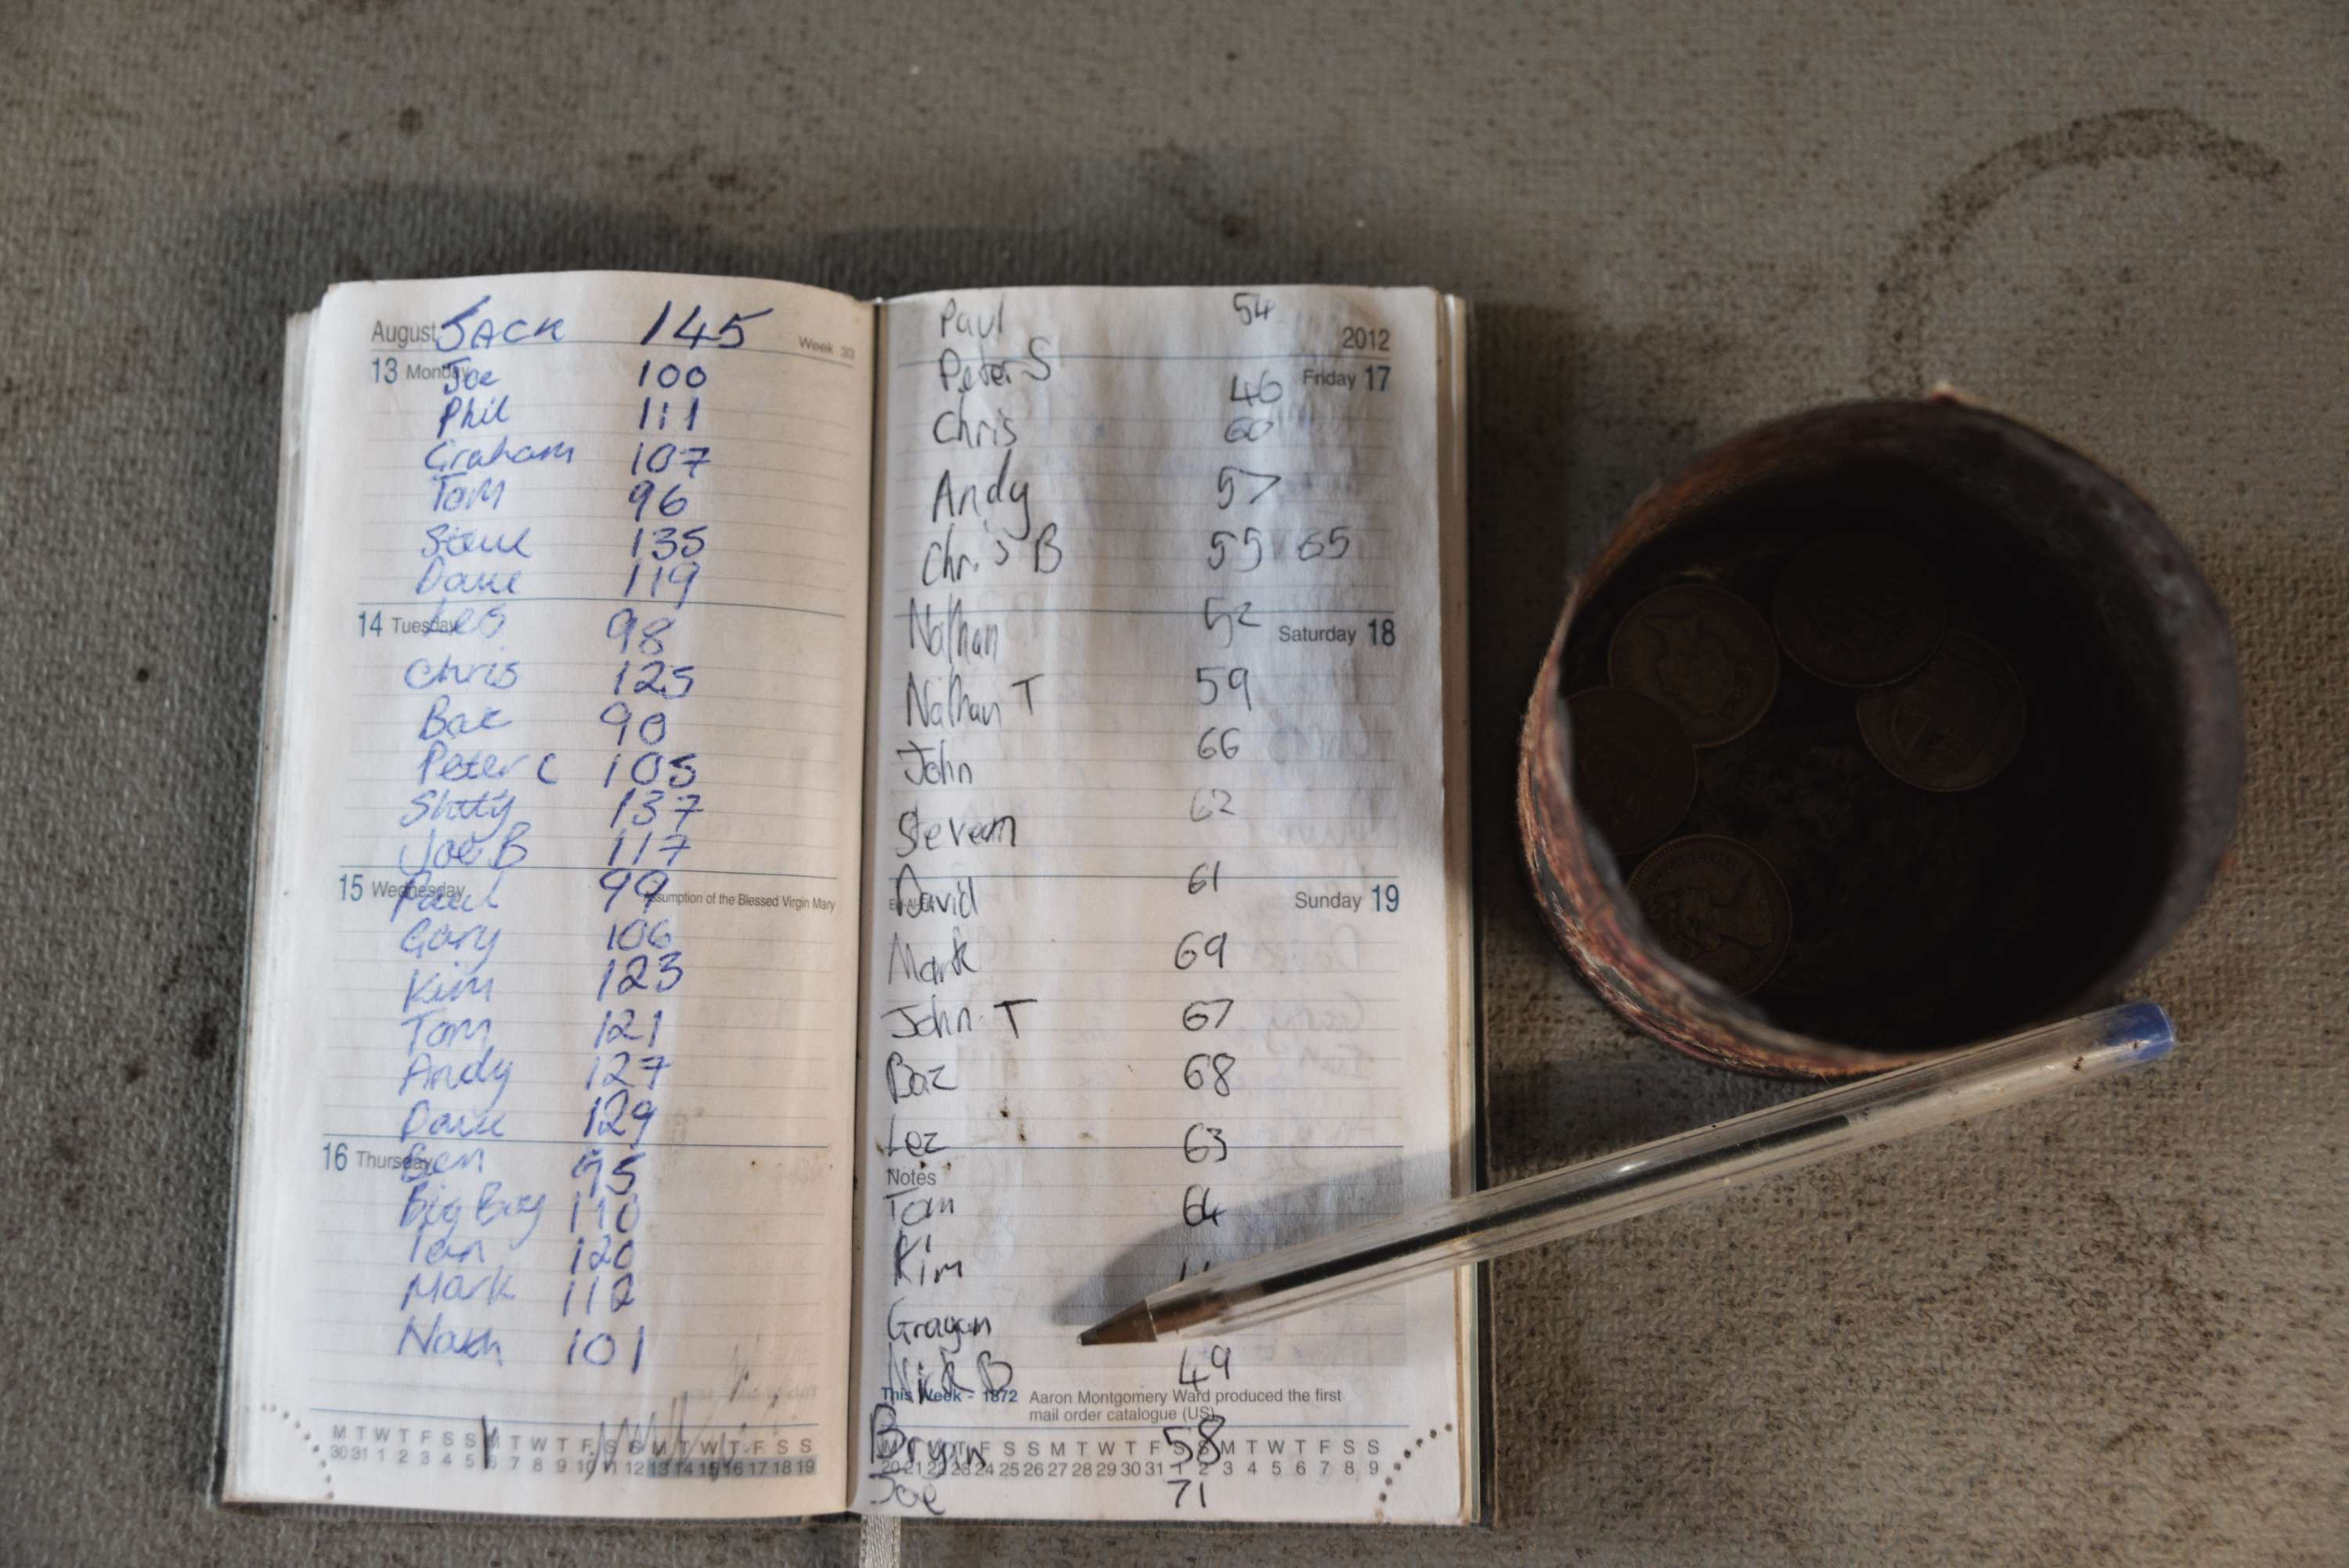 August JACK 145 Week 33
13 Monday Joe 100
Phil 111
Graham 107
Tom 96
Steve 135
Dave 119
14 Tuesday Leo 98
Chris 125
Baz 90
Peter C 105
137
Joe B 117
15 Wednesday Paul 99 Assumption of the Blessed Virgin Mary
Gary 106
Kim 123
Tom 121
Andy 127
Dave 129
16 Thursday Ben 95
Big Bag 110
Ian 120
Mark 112
Nath 101
M T W T F S S M T W T F S S M T W T F S S
30 31 1 2 3 4 5 6 7 8 9 10 11 12 13 14 15 16 17 18 19
Paul 54
2012
Peter S 46 Friday 17
Chris 60
Andy 57
Chris B 55 65
Nathan 52 Saturday 18
Nathan T 59
John 66
Steven 62
David 61 Sunday 19
Mark 69
John T 67
Baz 68
Lez 63
Notes
Tom 64
Kim
Nick B 49
This Week - 1872 Aaron Montgomery Ward produced the first
mail order catalogue (US)
Bryan 58
M T W T F S S M T W T F S S M T W T F S S
20 21 22 23 24 25 26 27 28 29 30 31 1 2 3 4 5 6 7 8 9
Joe 71